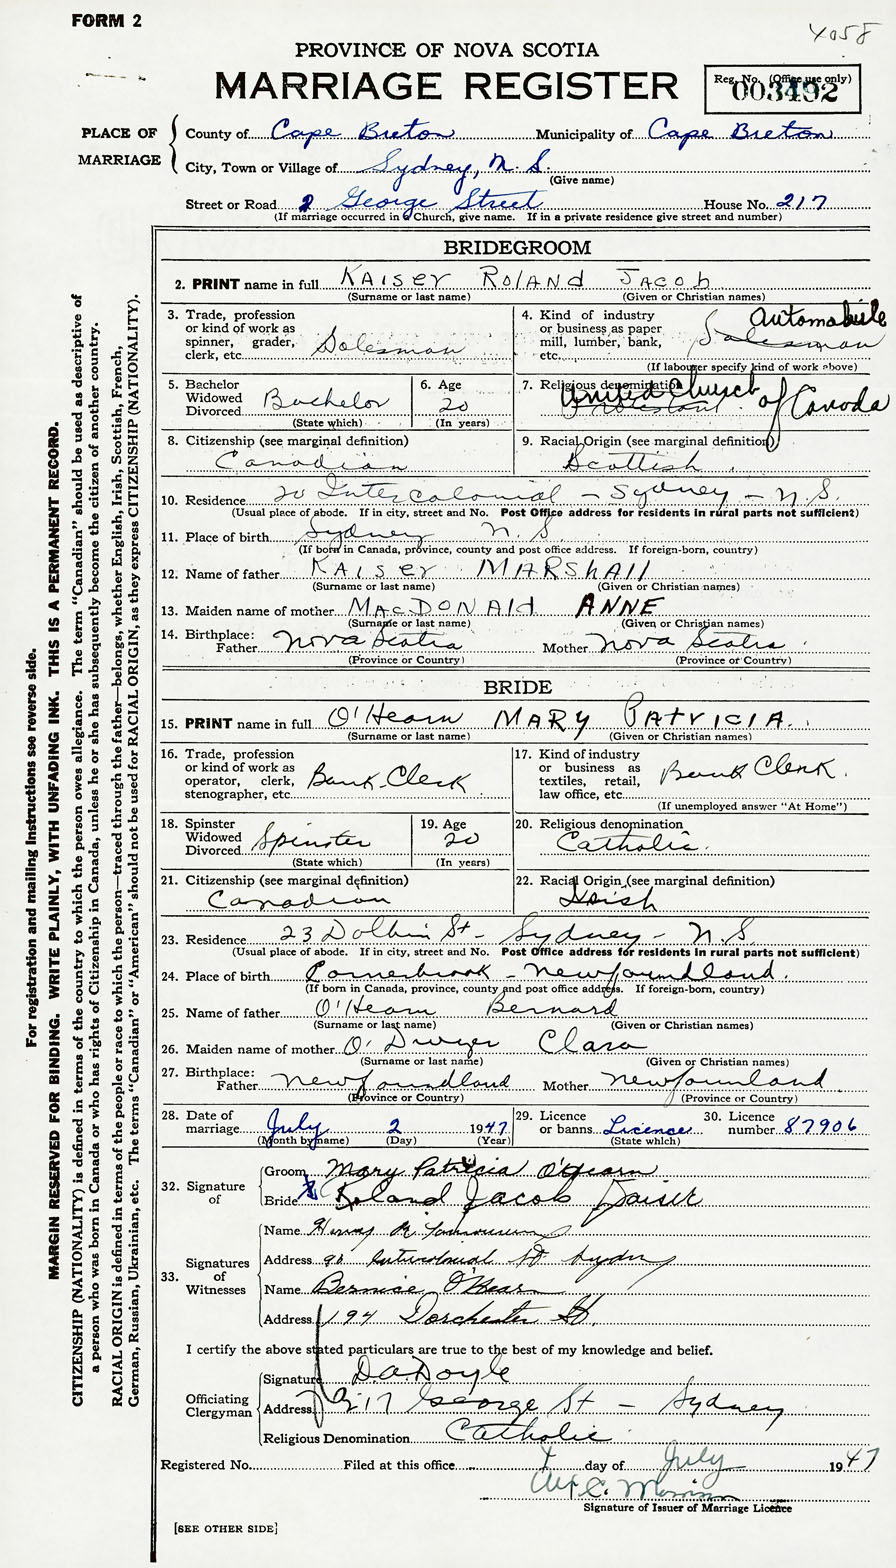 FORM 2
4058
PROVINCE OF NOVA SCOTIA
MARRIAGE REGISTER
Reg. No. (Office use only)
003492
PLACE OF MARRIAGE
County of Cape Breton Municipality of Cape Breton
City, Town or Village of Sydney, N. S.
(Give name)
Street or Road George Street House No. 217
(If marriage occurred in a Church, give name. If in a private residence give street and number)
BRIDEGROOM
2. PRINT name in full KAISER ROLAND JACOB
(Surname or last name) (Given or Christian names)
3. Trade, profession or kind of work as spinner, grader, clerk, etc. Salesman
4. Kind of industry or business as paper mill, lumber, bank, etc. Automobile Salesman
(If labourer specify kind of work above)
5. Bachelor Widowed Divorced Bachelor
(State which)
6. Age 20
(In years)
7. Religious denomination United Church of Canada
Protestant
8. Citizenship (see marginal definition) Canadian
9. Racial Origin (see marginal definition) Scottish
10. Residence 20 Intercolonial - Sydney - N.S.
(Usual place of abode. If in city, street and No. Post Office address for residents in rural parts not sufficient)
11. Place of birth Sydney N. S.
(If born in Canada, province, county and post office address. If foreign-born, country)
12. Name of father KAISER MARSHALL
(Surname or last name) (Given or Christian names)
13. Maiden name of mother MACDONALD ANNE
(Surname or last name) (Given or Christian names)
14. Birthplace: Father Nova Scotia Mother Nova Scotia
(Province or Country) (Province or Country)
BRIDE
15. PRINT name in full O'Hearn MARY PATRICIA.
(Surname or last name) (Given or Christian names)
16. Trade, profession or kind of work as operator, clerk, stenographer, etc. Bank-Clerk
17. Kind of industry or business as textiles, retail, law office, etc. Bank Clerk.
(If unemployed answer "At Home")
18. Spinster Widowed Divorced Spinster
(State which)
19. Age 20
(In years)
20. Religious denomination Catholic.
21. Citizenship (see marginal definition) Canadian
22. Racial Origin (see marginal definition) Irish
23. Residence 23 Dolbin St - Sydney - N.S.
(Usual place of abode. If in city, street and No. Post Office address for residents in rural parts not sufficient)
24. Place of birth Cornerbrook - Newfoundland.
(If born in Canada, province, county and post office address. If foreign-born, country)
25. Name of father O'Hearn Bernard
(Surname or last name) (Given or Christian names)
26. Maiden name of mother O'Dwyer Clara
(Surname or last name) (Given or Christian names)
27. Birthplace: Father Newfoundland Mother Newfounland
(Province or Country) (Province or Country)
28. Date of marriage July 2 1947
(Month by name) (Day) (Year)
29. Licence or banns Licence
(State which)
30. Licence number 87906
32. Signature of
Groom Mary Patricia O'Hearn
Bride Roland Jacob Kaiser
33. Signatures of Witnesses
Name Henry
Address 90 Intercolonial St Sydney
Name Bernice O'Hearn
Address 194 Dorchester St.
I certify the above stated particulars are true to the best of my knowledge and belief.
Officiating Clergyman
Signature D A Doyle
Address 217 George St - Sydney
Religious Denomination Catholic
Registered No. Filed at this office day of July 1947
C. Morrison
Signature of Issuer of Marriage Licence
[SEE OTHER SIDE]
For registration and mailing instructions see reverse side.
MARGIN RESERVED FOR BINDING. WRITE PLAINLY, WITH UNFADING INK. THIS IS A PERMANENT RECORD.
CITIZENSHIP (NATIONALITY) is defined in terms of the country to which the person owes allegiance. The term "Canadian" should be used as descriptive of
a person who was born in Canada or who has rights of Citizenship in Canada, unless he or she has subsequently become the citizen of another country.
RACIAL ORIGIN is defined in terms of the people or race to which the person—traced through the father—belongs, whether English, Irish, Scottish, French,
German, Russian, Ukrainian, etc. The terms "Canadian" or "American" should not be used for RACIAL ORIGIN, as they express CITIZENSHIP (NATIONALITY).